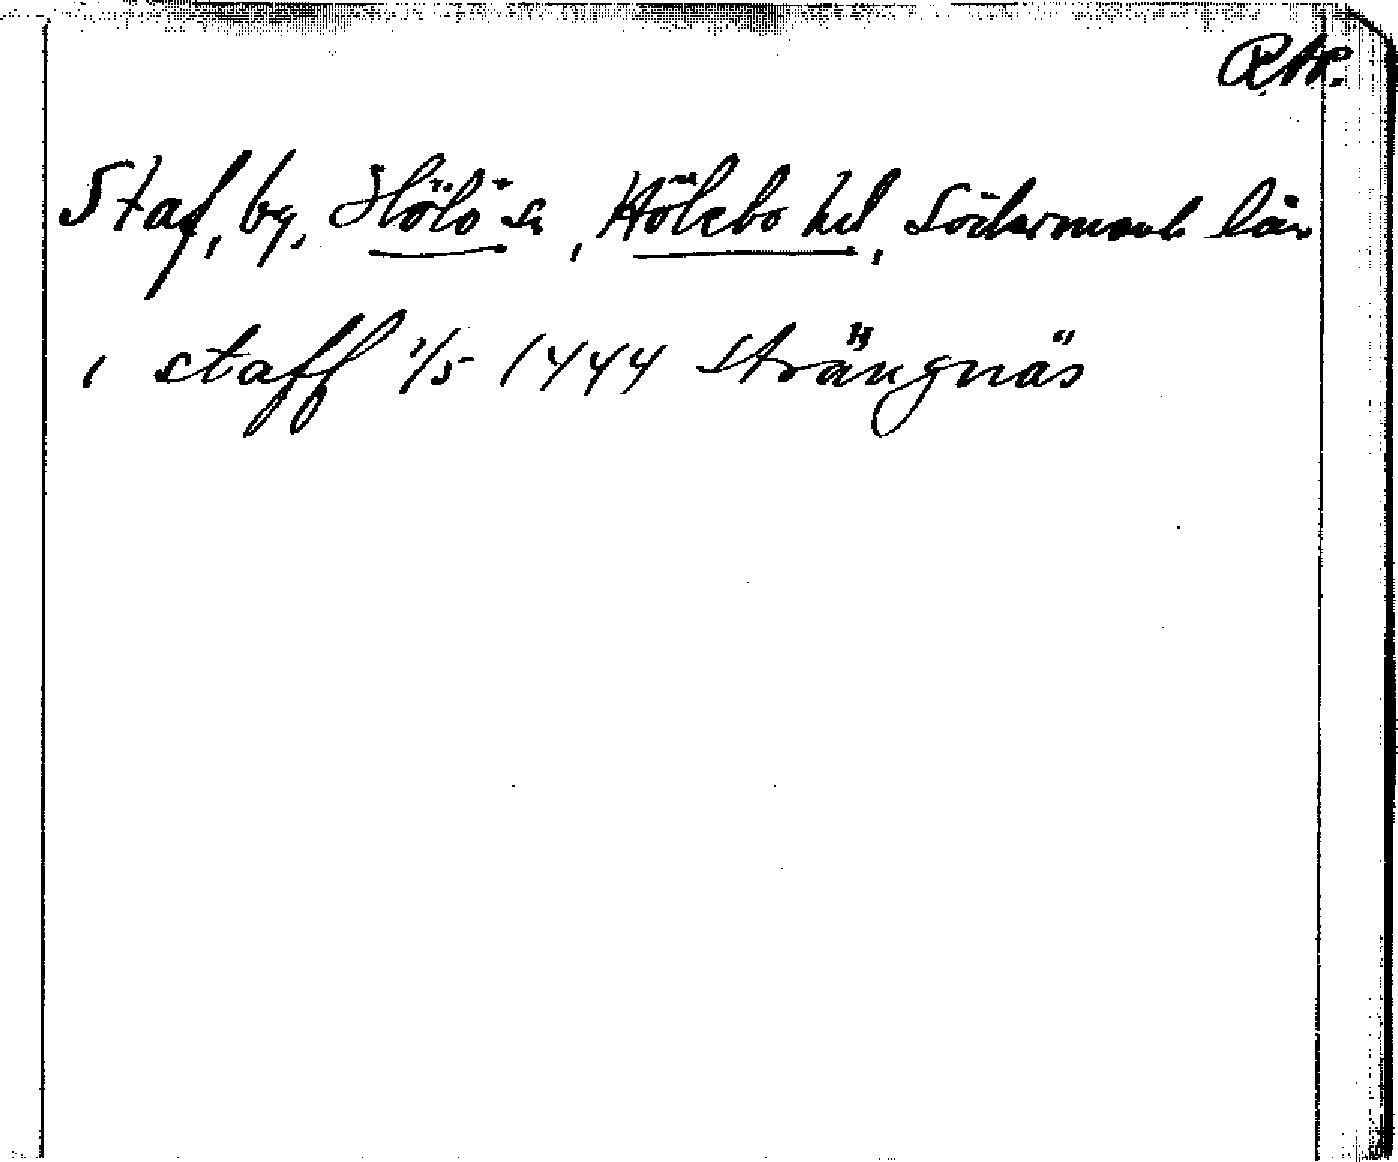 RAP.
Staf, by, Hölö sn, Hölebo hd, Södermanl. län
i staff 1/5 1444 Strängnäs